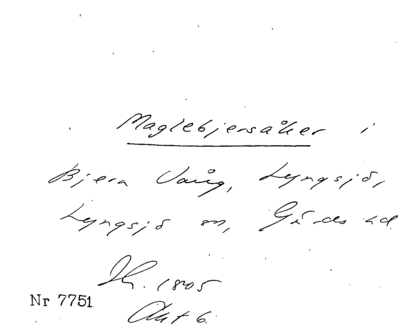 Maglebjersåker i
Bjera Vång, Lyngsjö,
Lyngsjö sn, Gärds hd.
Sk. 1805
Nr 7751
Akt 6.